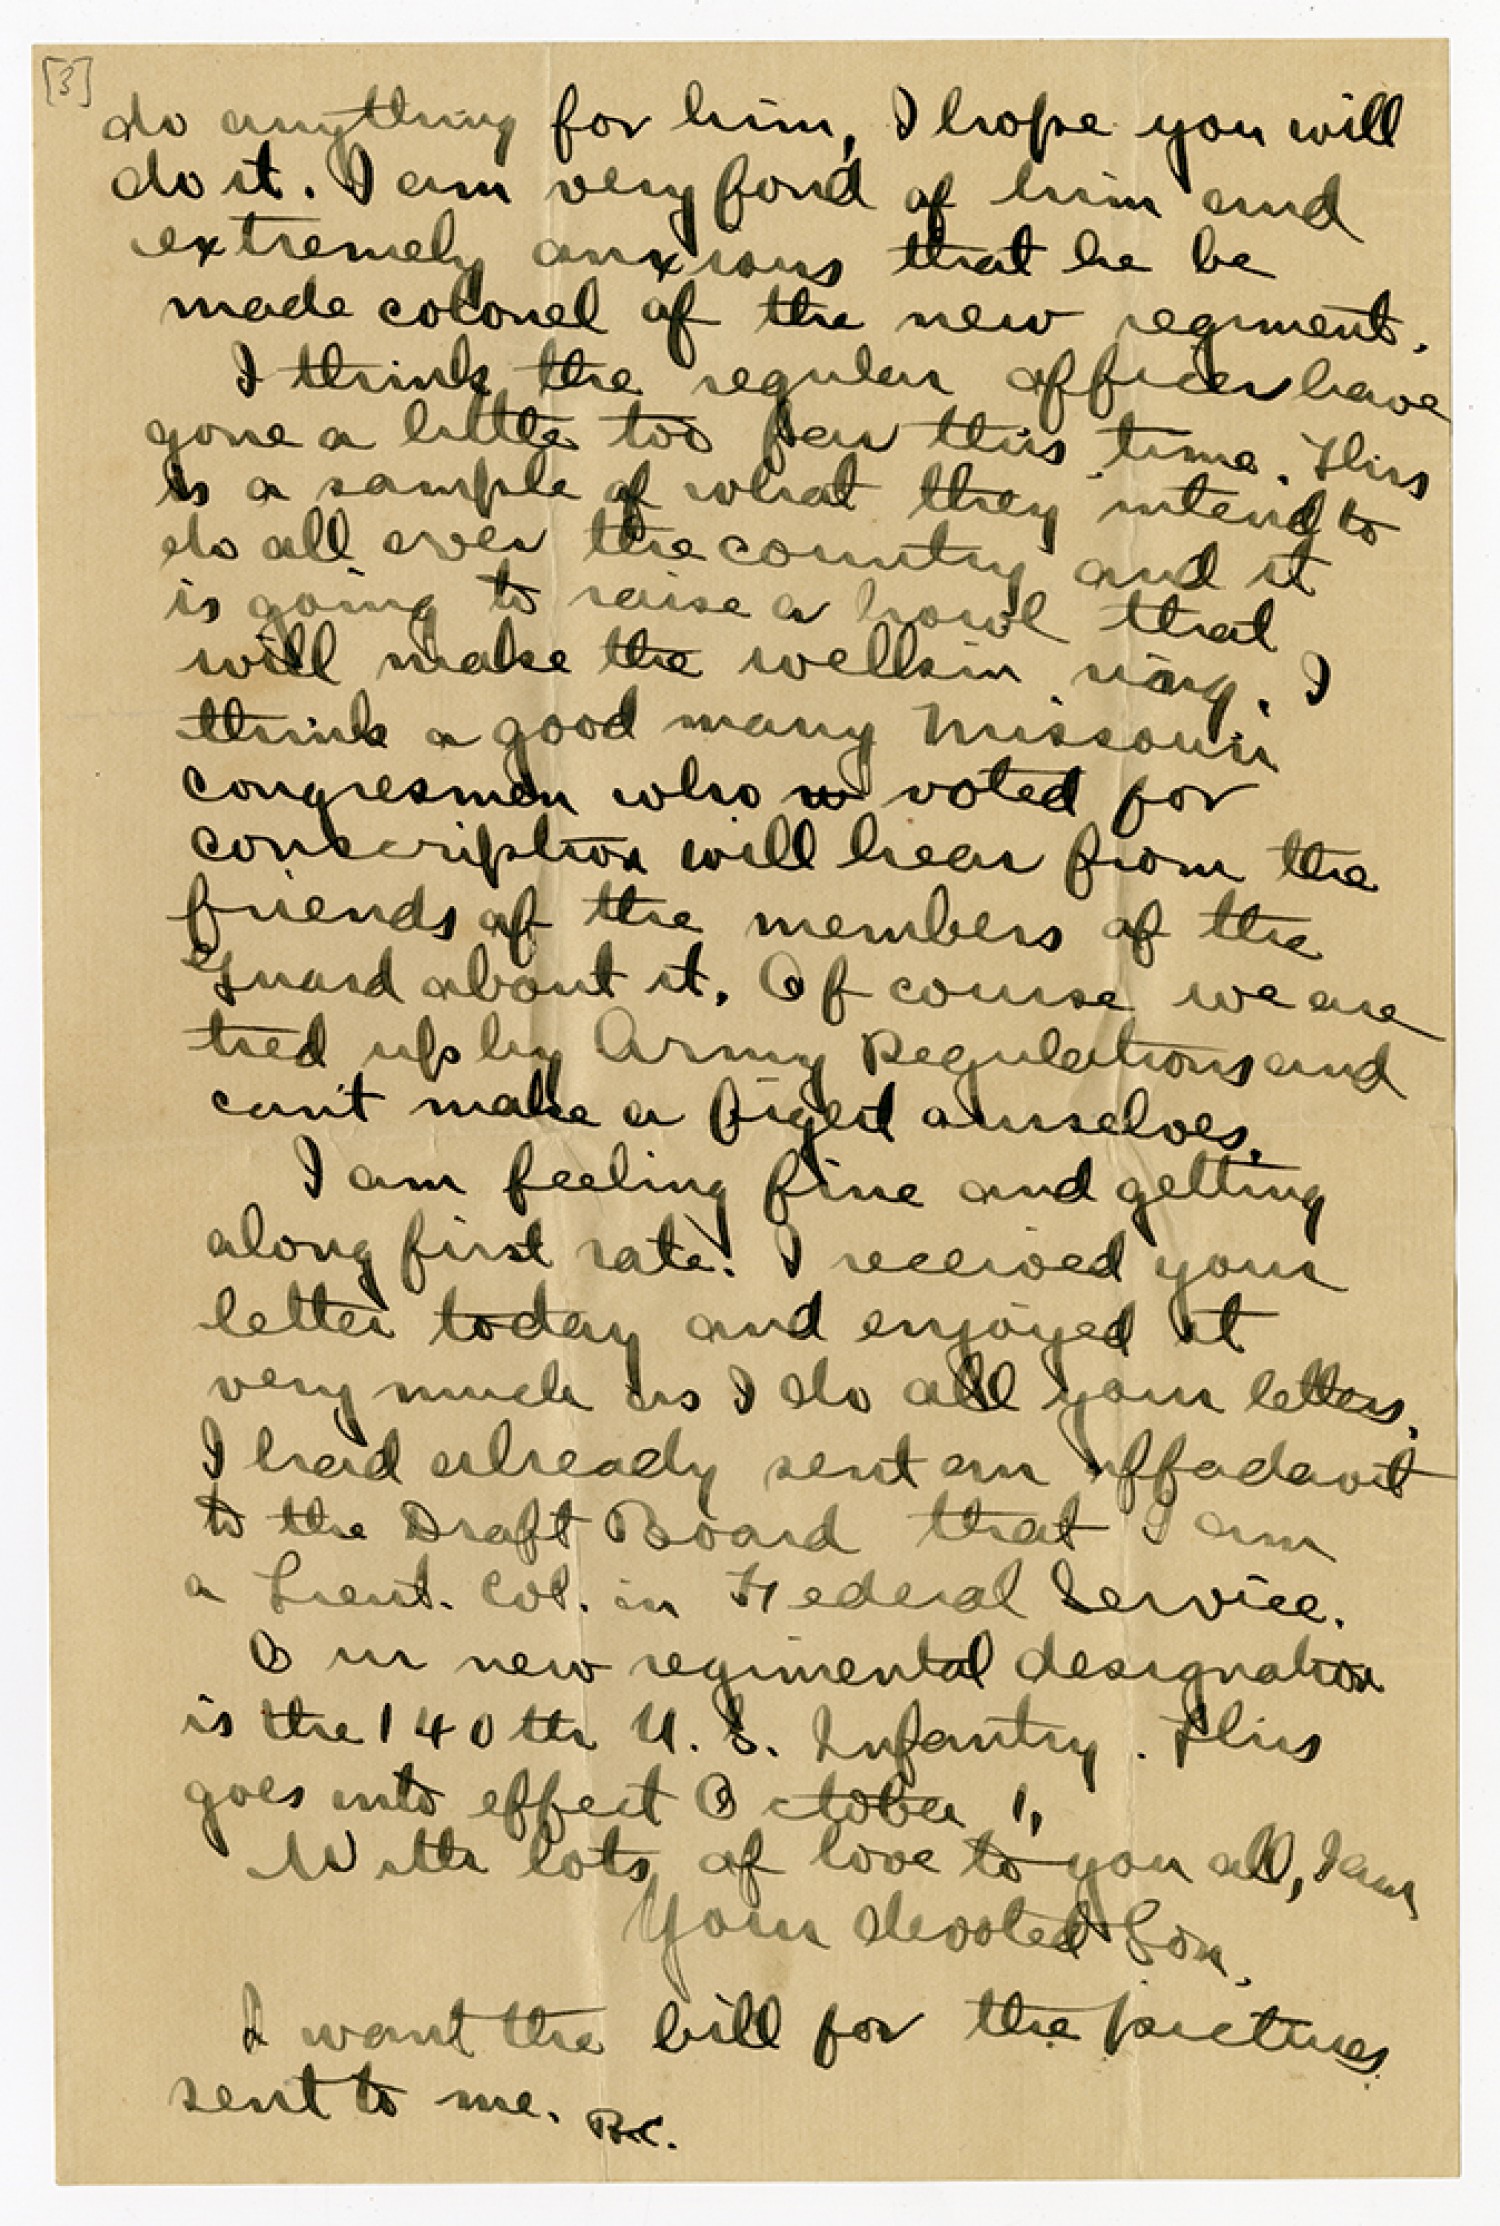 [3]
do anything for him, I hope you will
do it. I am very fond of him and
extremely anxious that he be
made colonel of the new regiment.
I think the regular officers have
gone a little too far this time. This
is a sample of what they intend to
do all over the country and it
is going to raise a howl that
will make the welkin ring. I
think a good many Missouri
congresmen who voted for
conscription will hear from the
friends of the members of the
Guard about it. Of course we are
tied up by Army Regulations and
can't make a fight ourselves.
I am feeling fine and getting
along first rate. I received your
letter today and enjoyed it
very much as I do all your letters.
I had already sent an affadavit
to the Draft Board that I am
a Lieut. Col. in Federal Service.
Our new regimental designation
is the 140th U.S. Infantry. This
goes into effect October 1,
With lots of love to you all, I am
Your devoted Son,
I want the bill for the pictures
sent to me. B.C.